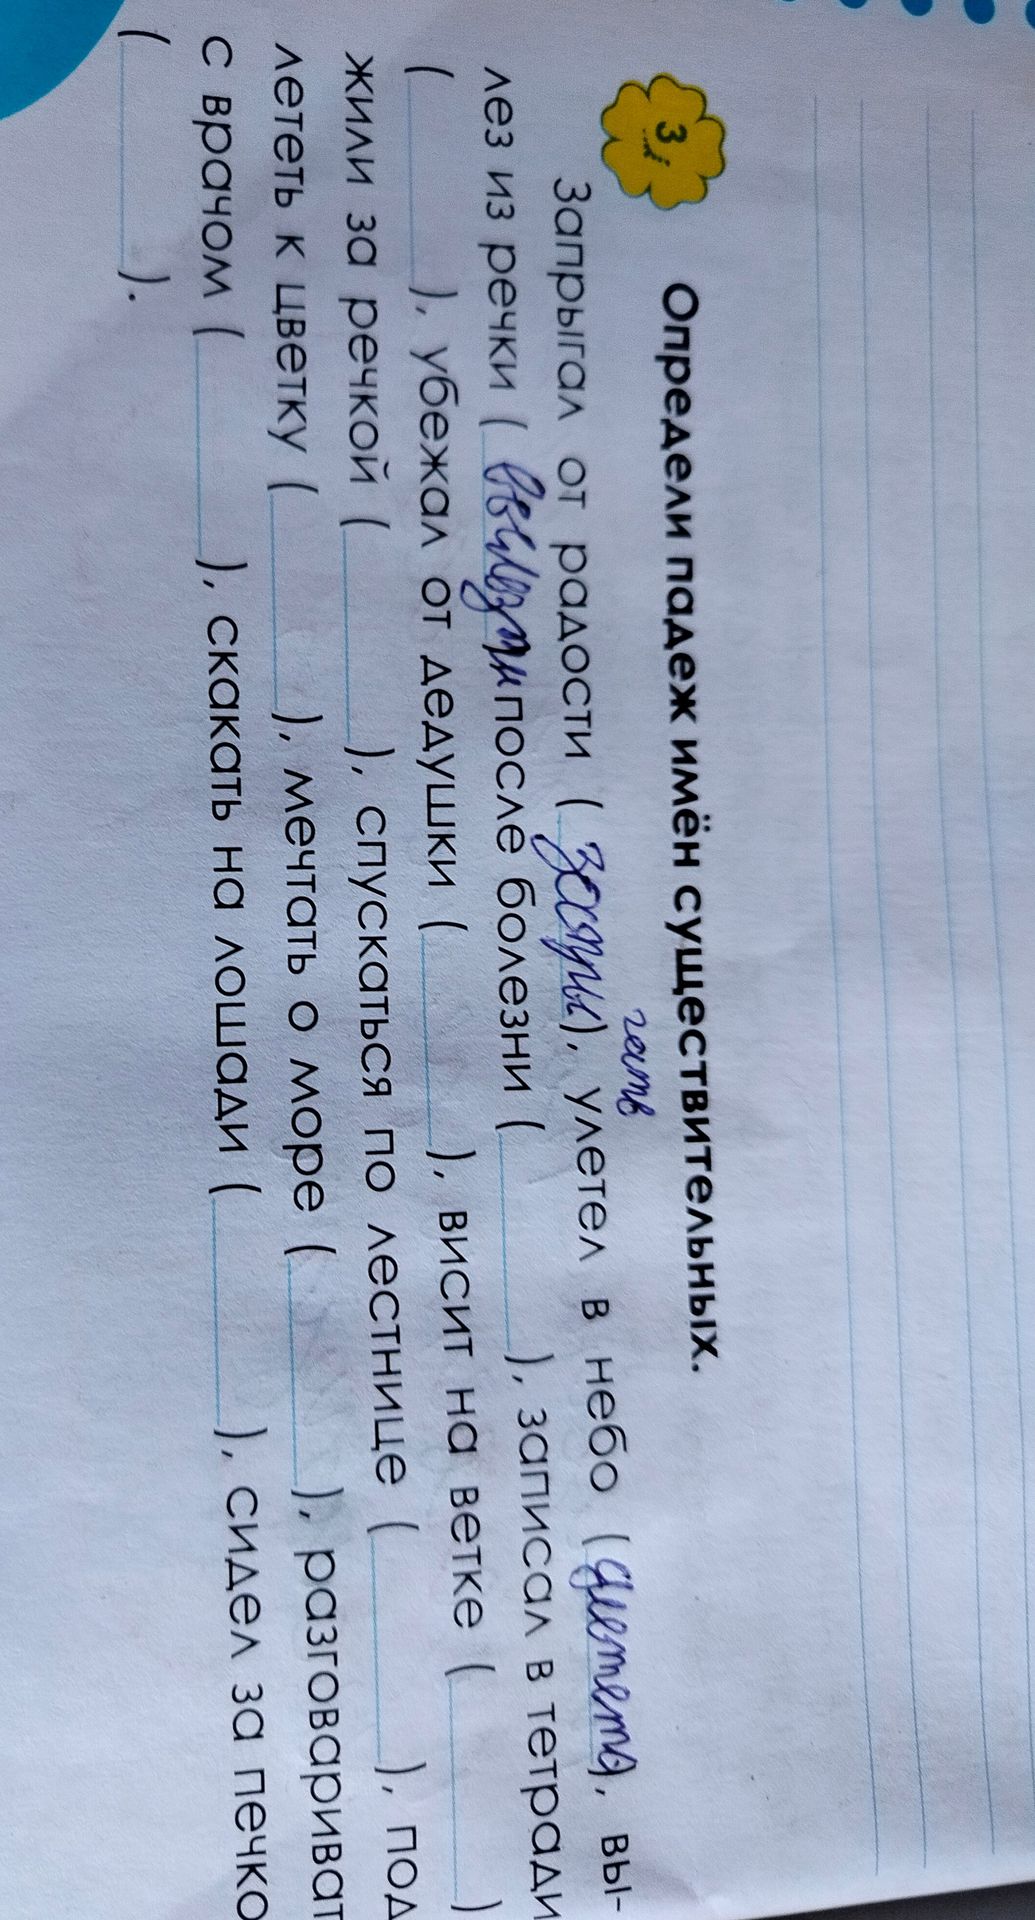 3
Определи падеж имён существительных.
Запрыгал от радости ( ), улетел в небо ( улететь ), вы-
лез из речки ( вылезти после болезни ( ), записал в тетради
( ), убежал от дедушки ( ), висит на ветке ( )
жили за речкой ( ), спускаться по лестнице ( ), под
лететь к цветку ( ), мечтать о море ( ), разговариват
с врачом ( ), скакать на лошади ( ), сидел за печко
( ).